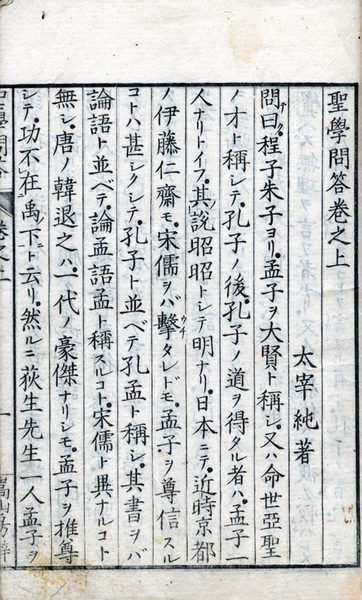 聖學問答卷之上
太宰純著
問曰。程子朱子ヨリ。孟子ヲ大賢ト稱シ。又ハ命世亞聖
ノオト稱シテ。孔子ノ後。孔子ノ道ヲ得タル者ハ。孟子一
人ナリトイフ。其說昭昭トシテ明ナリ。日本ニテ。近時京都
ノ伊藤仁齋モ。宋儒ヲバ擊タレドモ。孟子ヲ尊信スル
コトハ甚シクシテ。孔子ト並ベテ孔孟ト稱シ。其書ヲバ
論語ト並ベテ。論孟語孟ト稱スルコト。宋儒ト異ナルコト
無シ。唐ノ韓退之ハ。一代ノ豪傑ナリシモ。孟子ヲ推尊
シテ。功不在禹下ト云リ。然ルニ荻生先生一人孟子ヲ